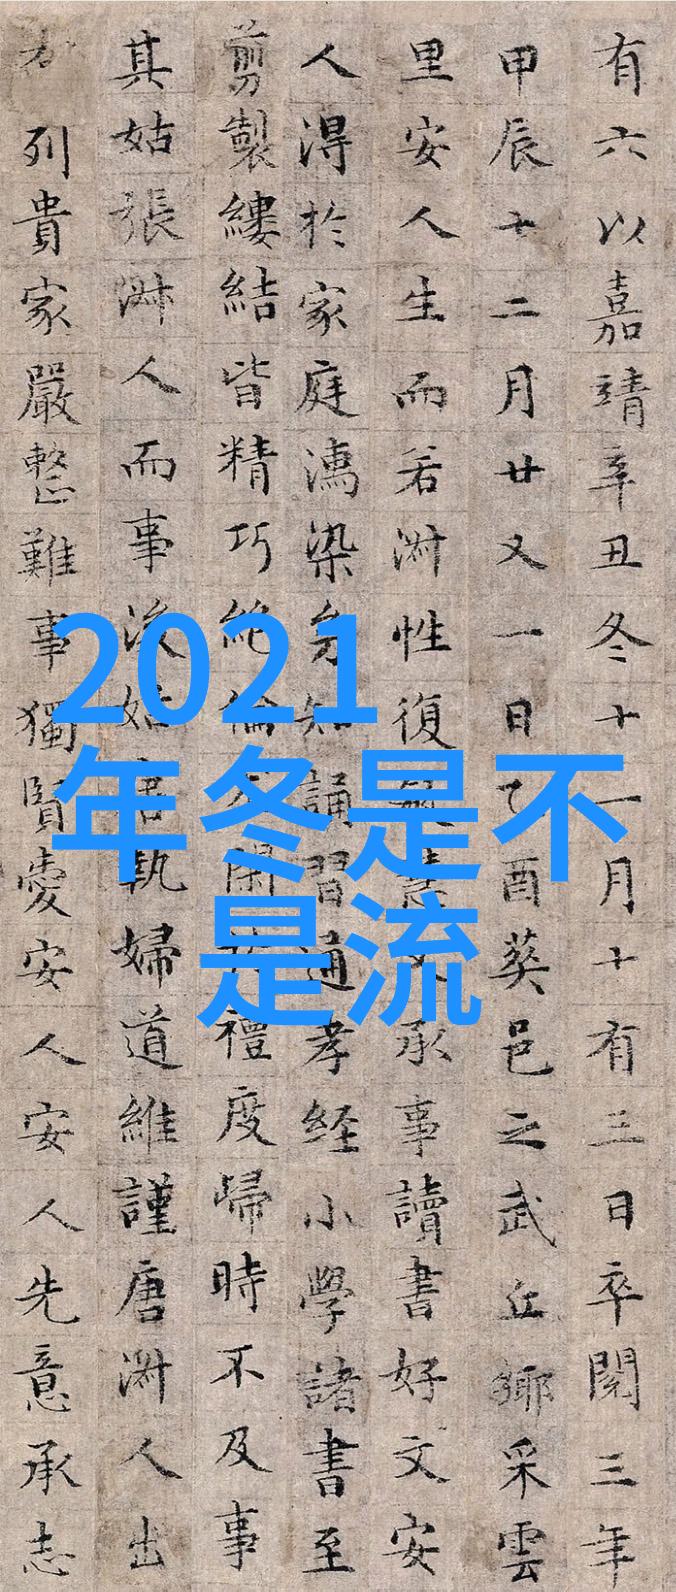 有六以嘉靖辛丑冬十一月十有三日卒閱三年
甲辰十二月廿又一日乙酉葬邑之武丘鄉采雲
里安人生而若淑性復敏慧父承事讀書好文安
人得於家庭濡染多知誦習通孝经小學諸書至
剪製縷結皆精巧絶倫閑於禮度歸時不及事
其姑張淑人而事後姑唐執婦道維謹唐淑人出
右列貴家嚴整難事獨賢愛安人安人先意承志
2021
年冬是不
是流